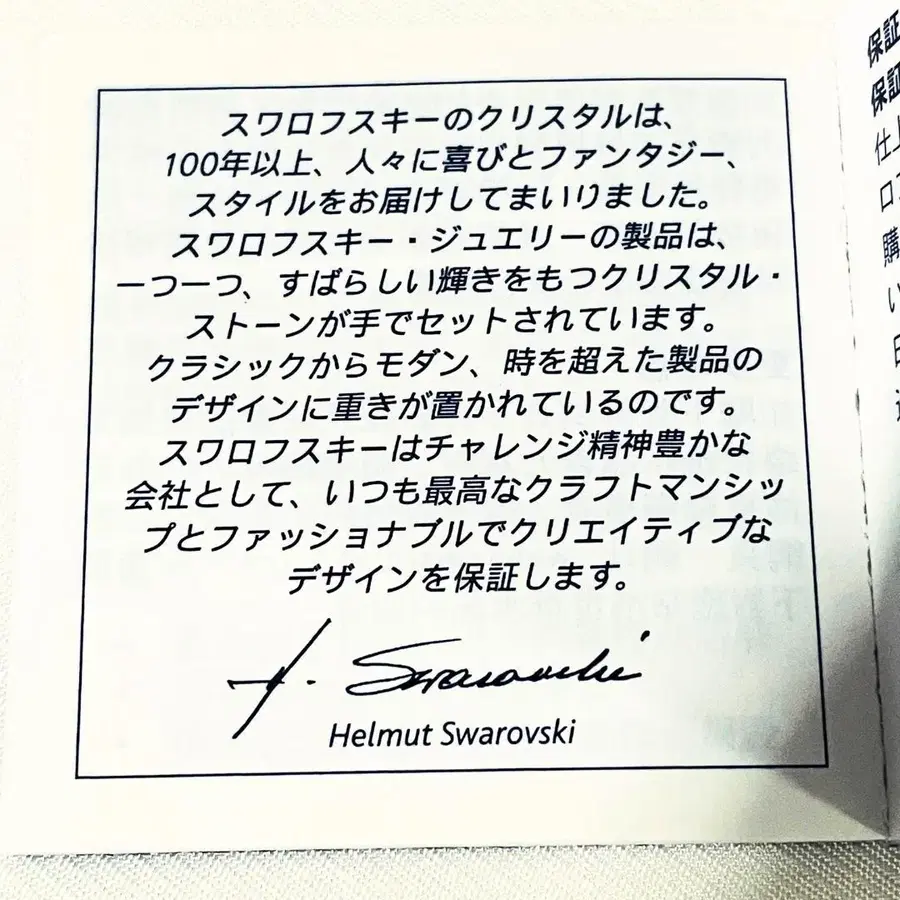 スワロフスキーのクリスタルは、
100年以上、人々に喜びとファンタジー、
スタイルをお届けしてまいりました。
スワロフスキー・ジュエリーの製品は、
一つ一つ、すばらしい輝きをもつクリスタル・
ストーンが手でセットされています。
クラシックからモダン、時を超えた製品の
デザインに重きが置かれているのです。
スワロフスキーはチャレンジ精神豊かな
会社として、いつも最高なクラフトマンシッ
プとファッショナブルでクリエイティブな
デザインを保証します。
H. Swarovski
Helmut Swarovski
保証
保証
仕上
ロフ
購
い